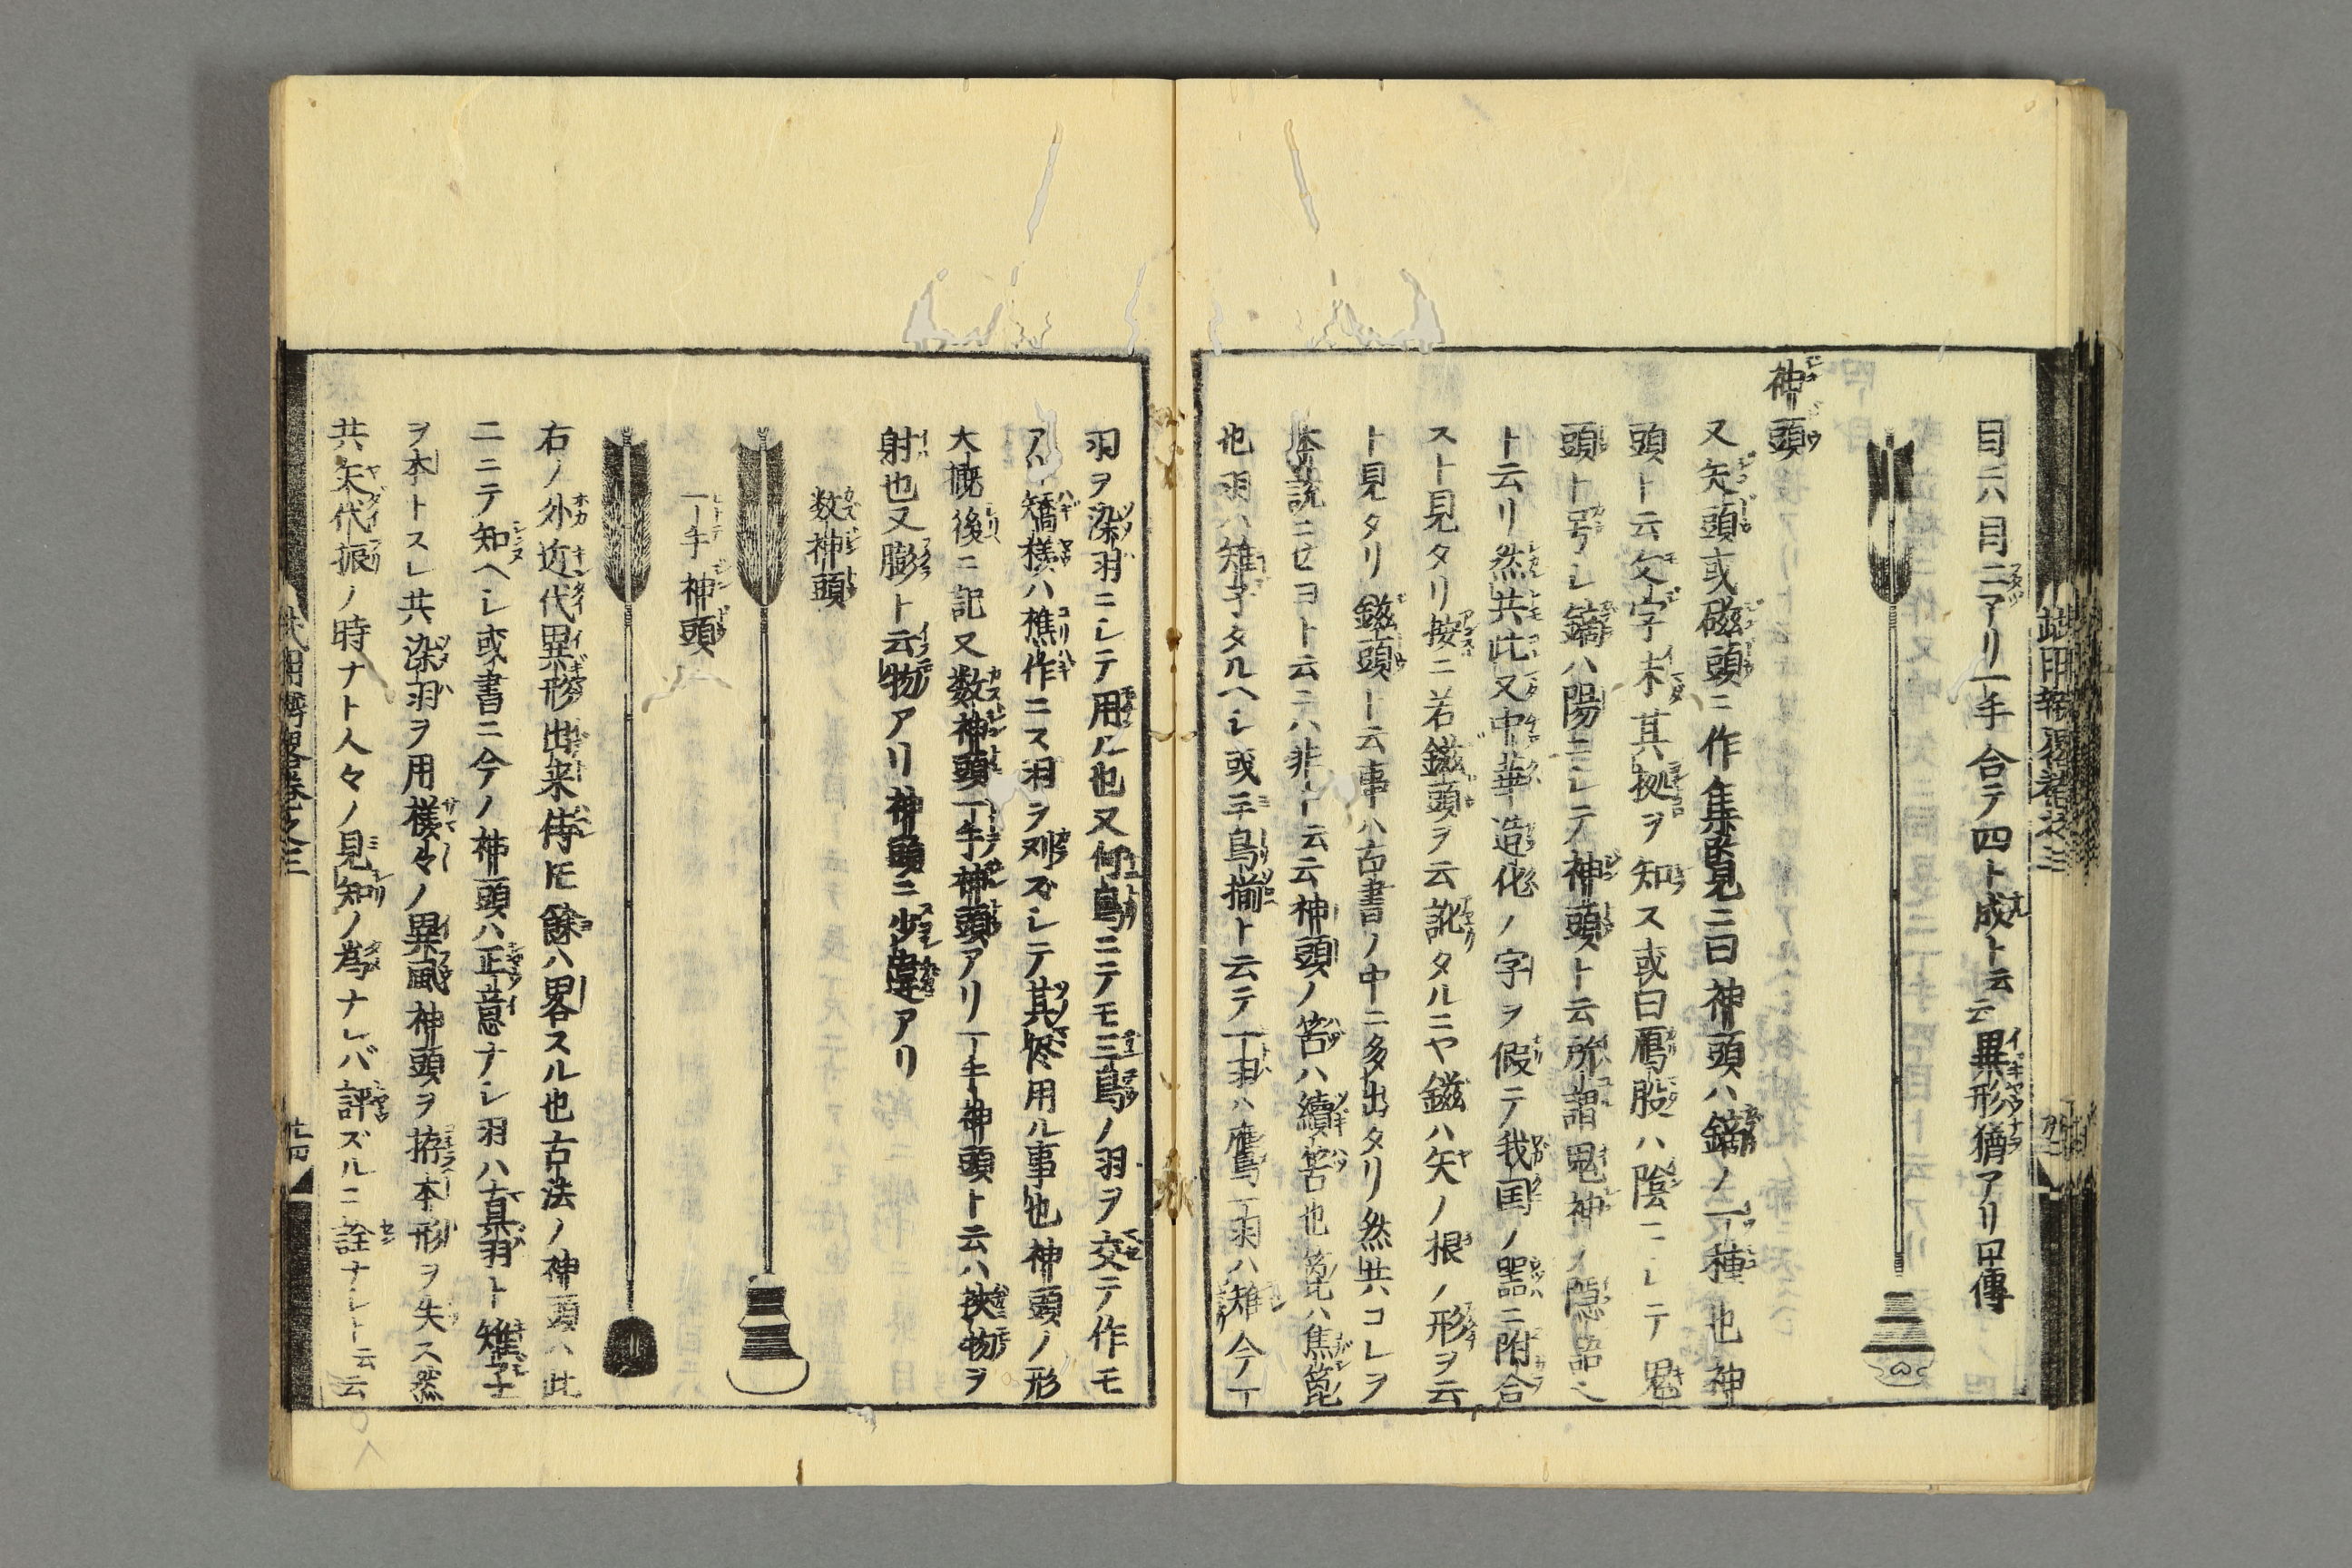 目六八目二アリ一手合テ四ト成ト云云異形猶アリ口傳
神頭
又矢頭或磁頭ニ作集書見ニ曰神頭ハ鏑ノ一種也神
頭ト云文字未其拠ヲ知ス或曰鴈股ハ陰ニシテ鬼
頭ト号シ鏑ハ陽ニシテ神頭ト云所謂鬼神ノ隠語之
ト云リ然共此又中華造化ノ字ヲ假テ我国ノ噐ニ附合
スト見タリ按ニ若鎡頭ヲ云訛タルニヤ鎡ハ矢ノ根ノ形ヲ云
ト見タリ鎡頭ト云事ハ古書ノ中ニ多出タリ然共コレヲ
本説ニセヨト云ニハ非ト云云神頭ノ筈ハ續筈也箆ハ焦箆
也羽ハ雉子タルヘシ或三鳥揃ト云テ一羽ハ鷹一羽ハ雉今一
羽ヲ染羽ニシテ用ル也又何鳥ニテモ三鳥ノ羽ヲ交テ作モ
アリ矯様ハ樵作ニス羽ヲ刈ズシテ其侭用ル事也神頭ノ形
大概後ニ記又数神頭一手神頭アリ一手神頭ト云ハ挟物ヲ
射也又膨ト云物アリ神頭ニ少違アリ
数神頭
一手神頭
右ノ外近代異形出来侍レ𪜈餘ハ畧スル也古法ノ神頭ハ此
二ニテ知ヘシ或書ニ今ノ神頭ハ正意ナシ羽ハ真羽ト雉子
ヲ本トスレ共染羽ヲ用様々ノ異風神頭ヲ拵本形ヲ失ス然
共矢代振ノ時ナト人々ノ見知ノ為ナレバ評ズルニ詮ナシト云云
武用辨畧巻之三
廿四